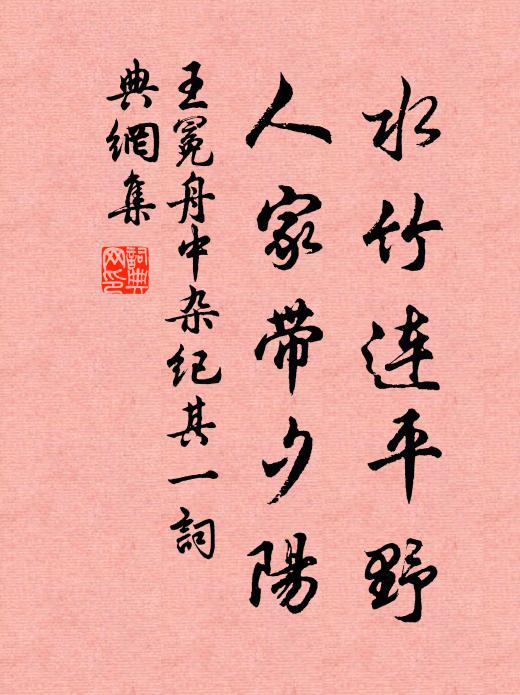 水竹连平野
人家带夕陽
王冕舟中杂纪其一詞
典網集
詞典
网印